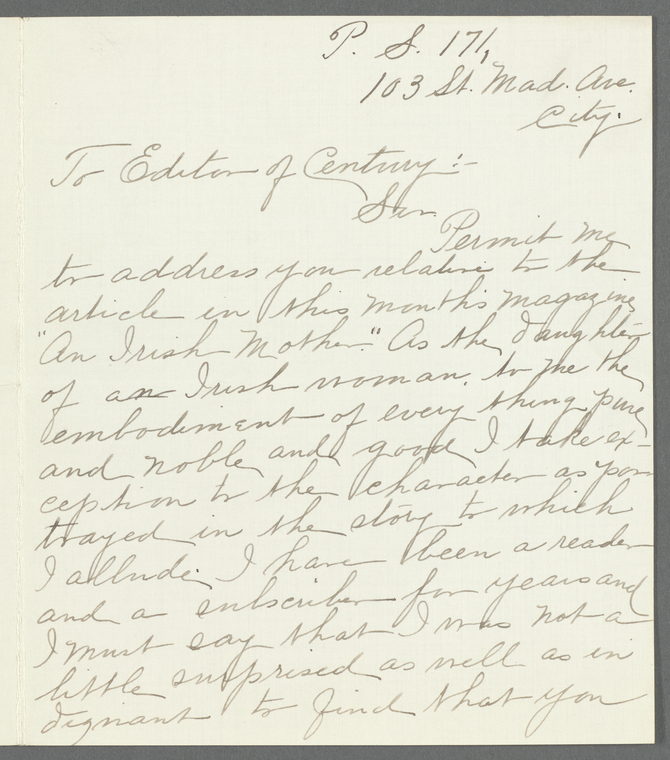 P. S. 171,
103 St. Mad. Ave.
City.
To Editor of Century:-
Sir
Permit me
to address you relative to the
article in this months magazine
"An Irish Mother." As the daughter
of an Irish woman, to me the
embodiment of every thing pure
and noble and good I take ex-
ception to the character as por
trayed in the story to which
I allude. I have been a reader
and a subscriber for years and
I must say that I was not a
little surprised as well as in
dignant to find that you